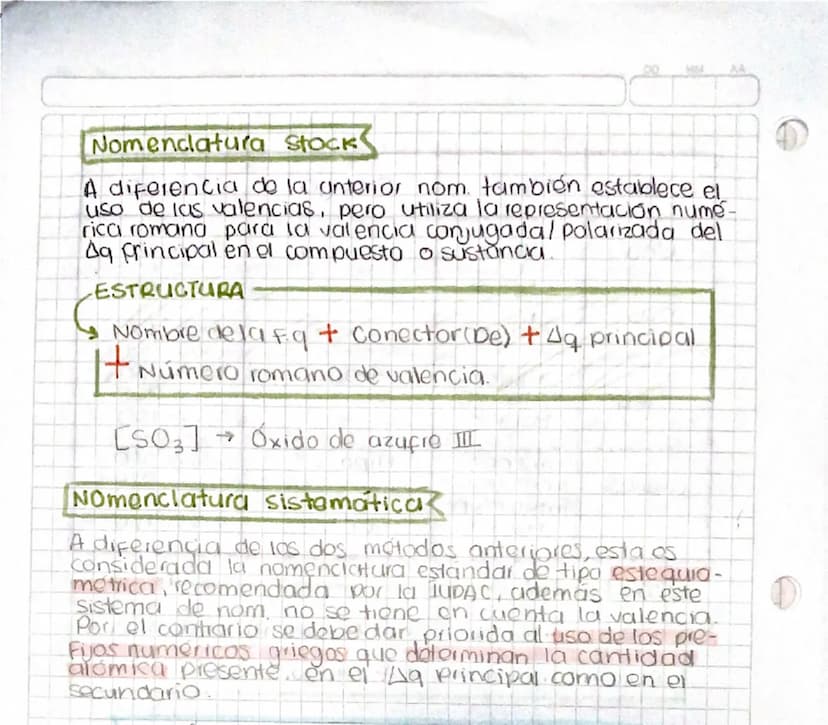 DD MM AA
Nomenclatura stock
A diferencia de la anterior nom. también establece el
uso de las valencias, pero utiliza la representación numé-
rica romana para la valencia conjugada/polarizada del
Δq principal en el compuesto o sustancia.
ESTRUCTURA
Nombre de la f.q + Conector(De) + Δq principal
+ Número romano de valencia.
[SO₃] → Óxido de azufre III
Nomenclatura sistemática
A diferencia de los dos métodos anteriores, esta es
considerada la nomenclatura estandar de tipo estequio-
métrica, recomendada por la IUPAC, además en este
sistema de nom. no se tiene en cuenta la valencia.
Por el contrario se debe dar priorida al uso de los pre-
fijos numéricos griegos que determinan la cantidad
atómica presente en el Δq principal como en el
secundario.